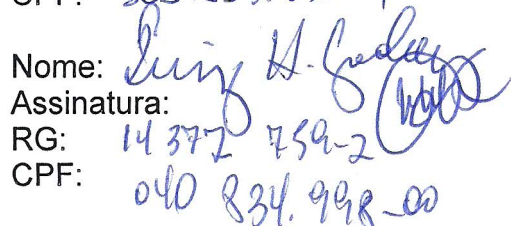 CPF:
Nome: Luiz H. Godoy
Assinatura:
RG: 14 377 759-2
CPF: 040 834.998-00